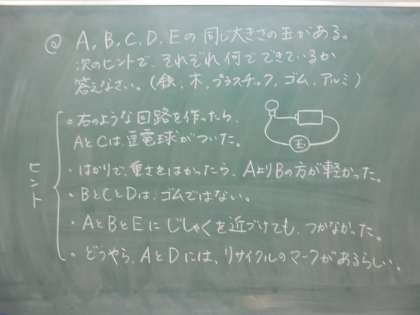 @ A, B, C, D, E の 同じ大きさの玉がある。
次のヒントで、それぞれ何でできているか
答えなさい。(鉄, 木, プラスチック, ゴム, アルミ)
ヒント
・右のような回路を作ったら、
AとCは、豆電球がついた。
玉
・はかりで、重さをはかったら、AよりBの方が軽かった。
・BとCとDは、ゴムではない。
・AとBとEに じしゃくを近づけても、つかなかった。
・どうやら、AとDには、リサイクルのマークがあるらしい。